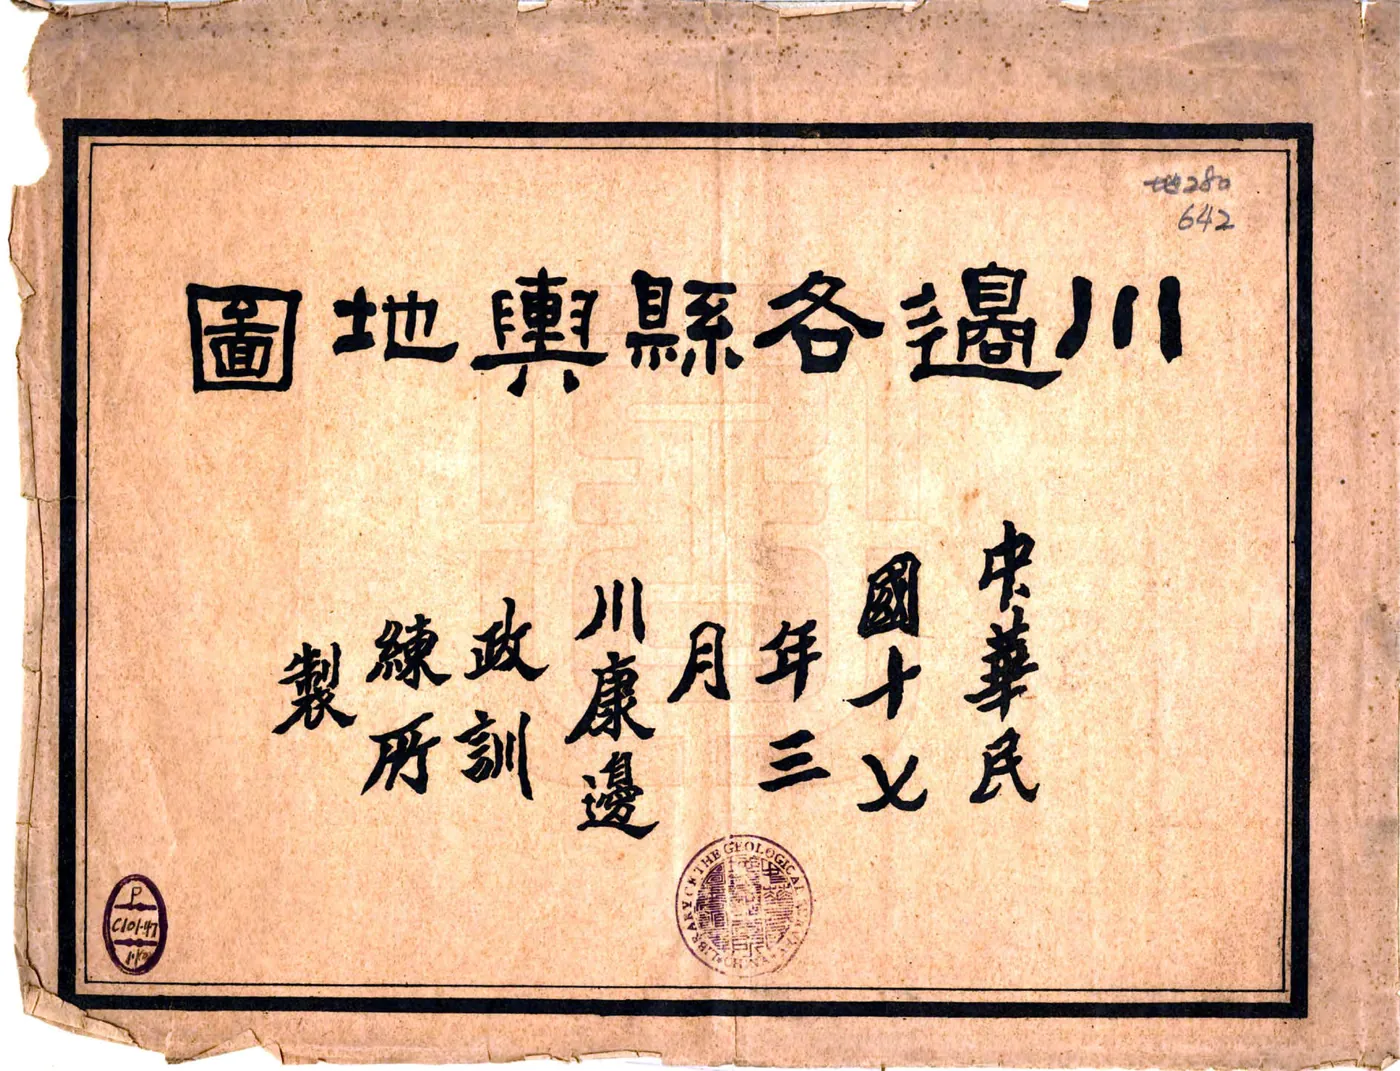 地280
642
川邊各縣輿地圖
中華民
國十七
年三
月
川康邊
政訓
練所
製
LIBRARY OF THE GEOLOGICAL SURVEY
CHINA
P
C101.47